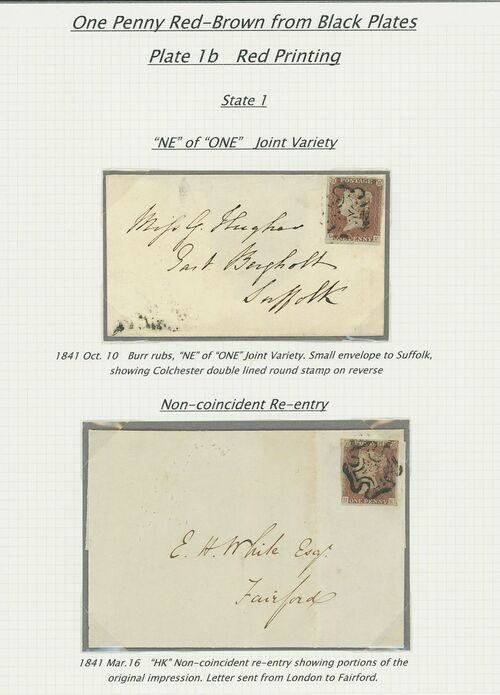 One Penny Red-Brown from Black Plates
Plate 1b Red Printing
State 1
"NE" of "ONE" Joint Variety
POSTAGE
ONE PENNY
Miss G. Hughes
East Bergholt
Suffolk
1841 Oct. 10 Burr rubs, "NE" of "ONE" Joint Variety. Small envelope to Suffolk,
showing Colchester double lined round stamp on reverse
Non-coincident Re-entry
ONE PENNY
E. H. White Esqr.
Fairford
1841 Mar.16 "HK" Non-coincident re-entry showing portions of the
original impression. Letter sent from London to Fairford.